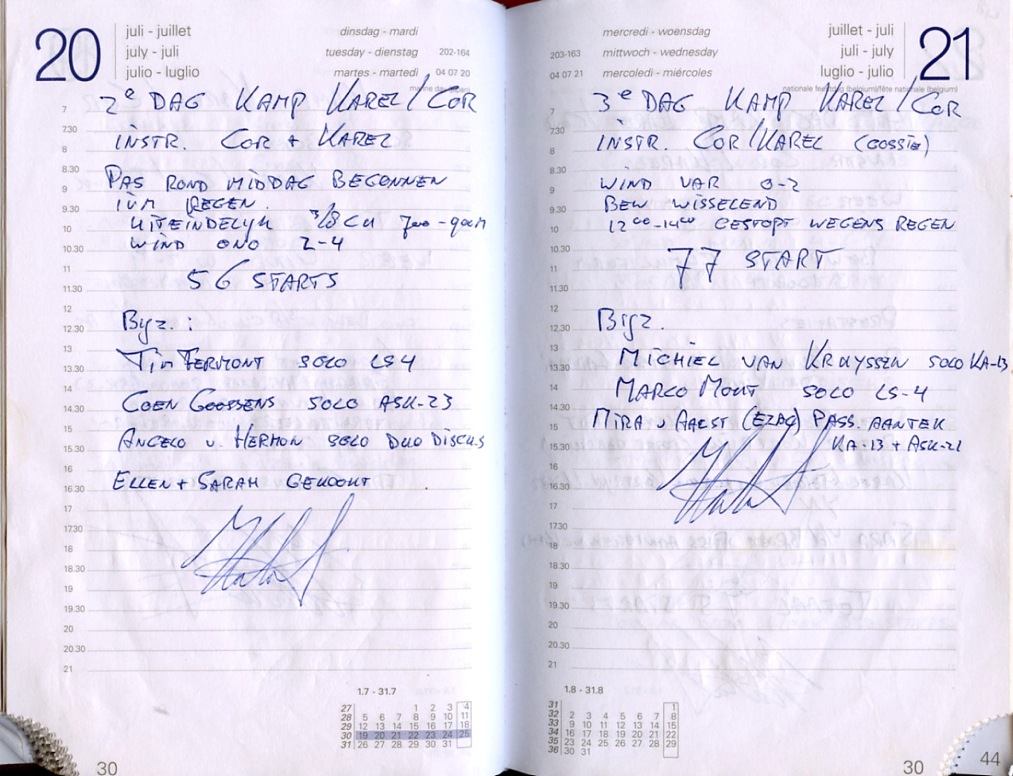 20
juli - juillet
july - juli
julio - luglio
dinsdag - mardi
tuesday - dienstag 202-164
martes - martedi 04 07 20
7 2e DAG KAMP KAREL/COR
7.30
8 INSTR. COR + KAREL
8.30
9 PAS ROND MIDDAG BEGONNEN
9.30 IVM REGEN.
10 UITEINDELYK 3/8 CU 700-900M
10.30 WIND ONO 2-4
11
11.30 56 STARTS
12
12.30 Byz. :
13
13.30 TIM FERMONT SOLO LS4
14
14.30 COEN GOOSSENS SOLO ASK-23
15
15.30 ANGELO v. HERMON SOLO DUO DISCUS
16
16.30 ELLEN + SARAH GEKOOKT
17
17.30
18
18.30
19
19.30
20
20.30
21
1.7 - 31.7
27 1 2 3 4
28 5 6 7 8 9 10 11
29 12 13 14 15 16 17 18
30 19 20 21 22 23 24 25
31 26 27 28 29 30 31
30
mercredi - woensdag
203-163 mittwoch - wednesday
04 07 21 mercoledi - miércoles
juillet - juli
juli - july
luglio - julio
21
nationale feestdag (belgium)/fête nationale (belgium)
7 3e DAG KAMP KAREL/COR
7.30
8 INSTR. COR/KAREL (GOSSIE)
8.30
9 WIND VAR 0-2
9.30 BEW WISSELEND
10 12 00-14 00 GESTOPT WEGENS REGEN
10.30
11 77 START
11.30
12
12.30 Byz.
13
13.30 MICHIEL VAN KRUYSSEN SOLO KA-13
14 MARCO MONT SOLO LS-4
14.30
15 MIRA v AALST (EZAC) PASS. AANTEK
15.30 KA-13 + ASK-21
16
16.30
17
17.30
18
18.30
19
19.30
20
20.30
21
1.8 - 31.8
31 1
32 2 3 4 5 6 7 8
33 9 10 11 12 13 14 15
34 16 17 18 19 20 21 22
35 23 24 25 26 27 28 29
36 30 31
30
44